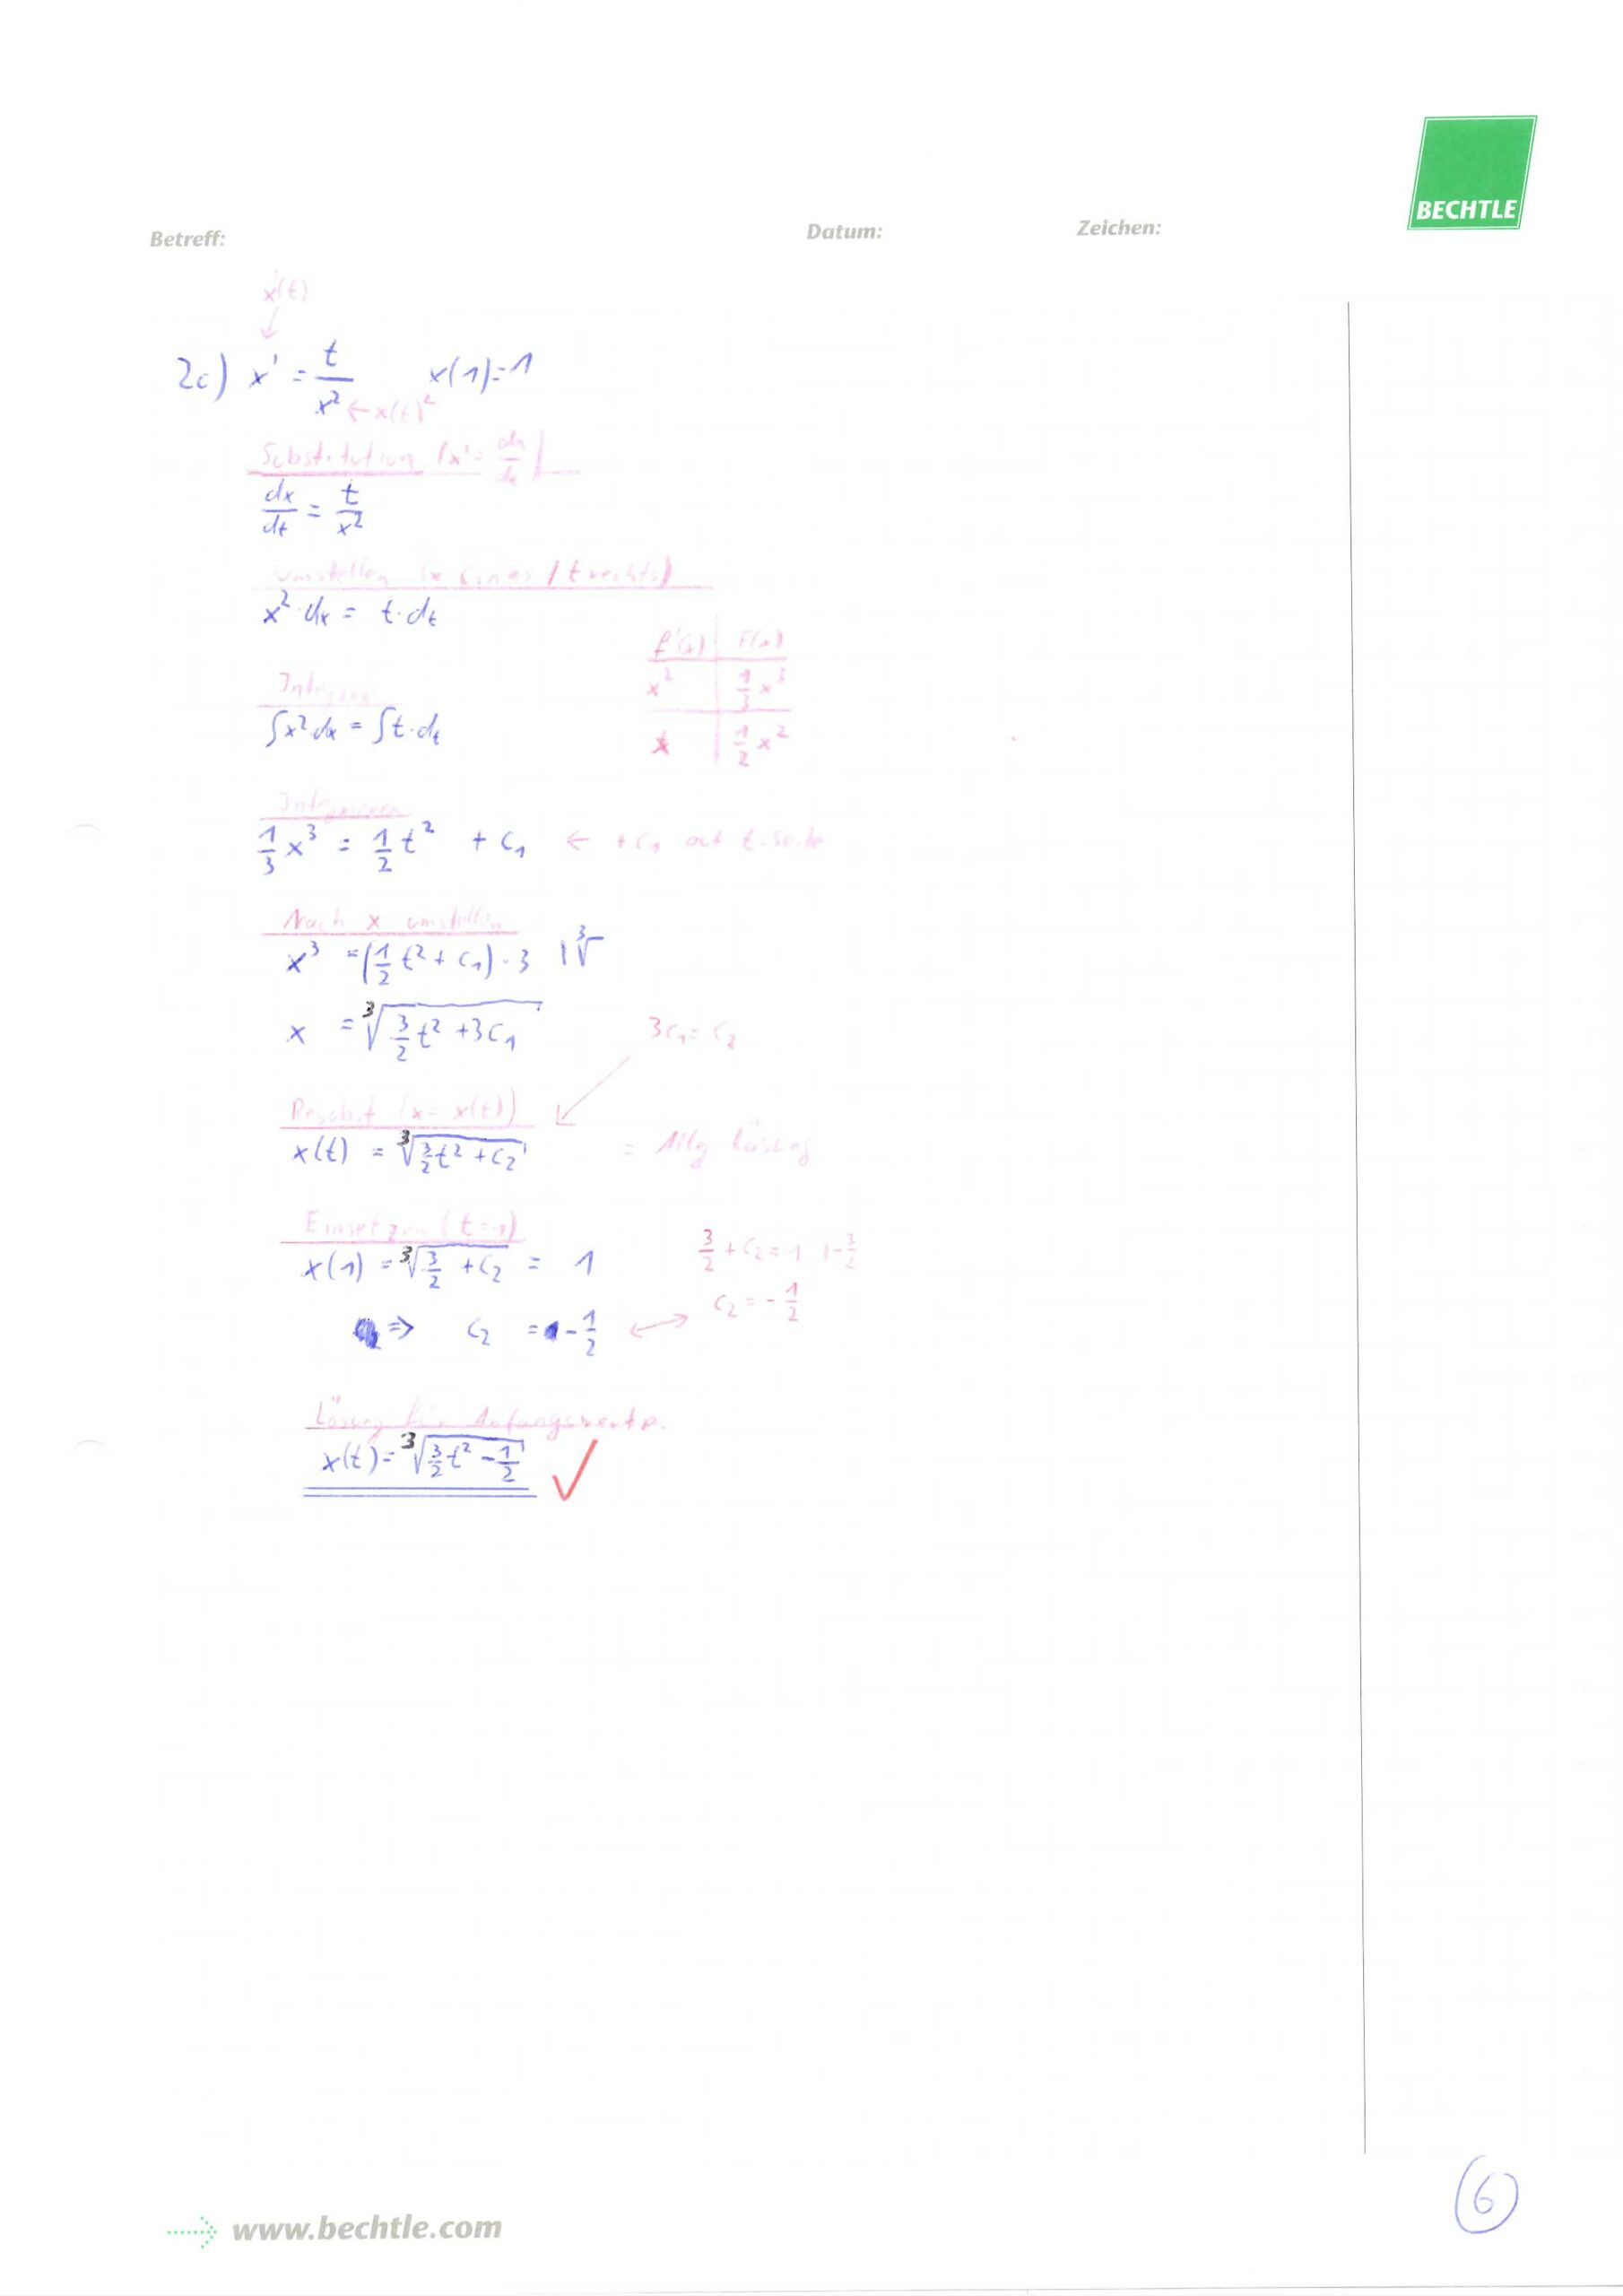 BECHTLE
Betreff: Datum: Zeichen:
x'(t)
↓
2c) x' = t/x² x(1)=1
← x(t)²
Substitution (x' = dx/dt)
dx/dt = t/x²
Umstellen (x links / t rechts)
x²·dx = t·dt
f'(x) | F(x)
x² | 1/3 x³
x | 1/2 x²
∫x²·dx = ∫t·dt
Integrieren
1/3 x³ = 1/2 t² + C₁ ← +C₁ auf t-Seite
Nach x umstellen
x³ = (1/2 t² + C₁)·3 |∛
x = ∛(3/2 t² + 3C₁)
3C₁ = C₂
Resubst (x = x(t))
x(t) = ∛(3/2 t² + C₂) = Allg Lösung
Einsetzen (t=1)
x(1) = ∛(3/2 + C₂) = 1
3/2 + C₂ = 1 |-3/2
C₂ = -1/2
⇒ C₂ = -1/2 ↔
Lösung für Anfangswertp.
x(t) = ∛(3/2 t² - 1/2) ✓
6
www.bechtle.com